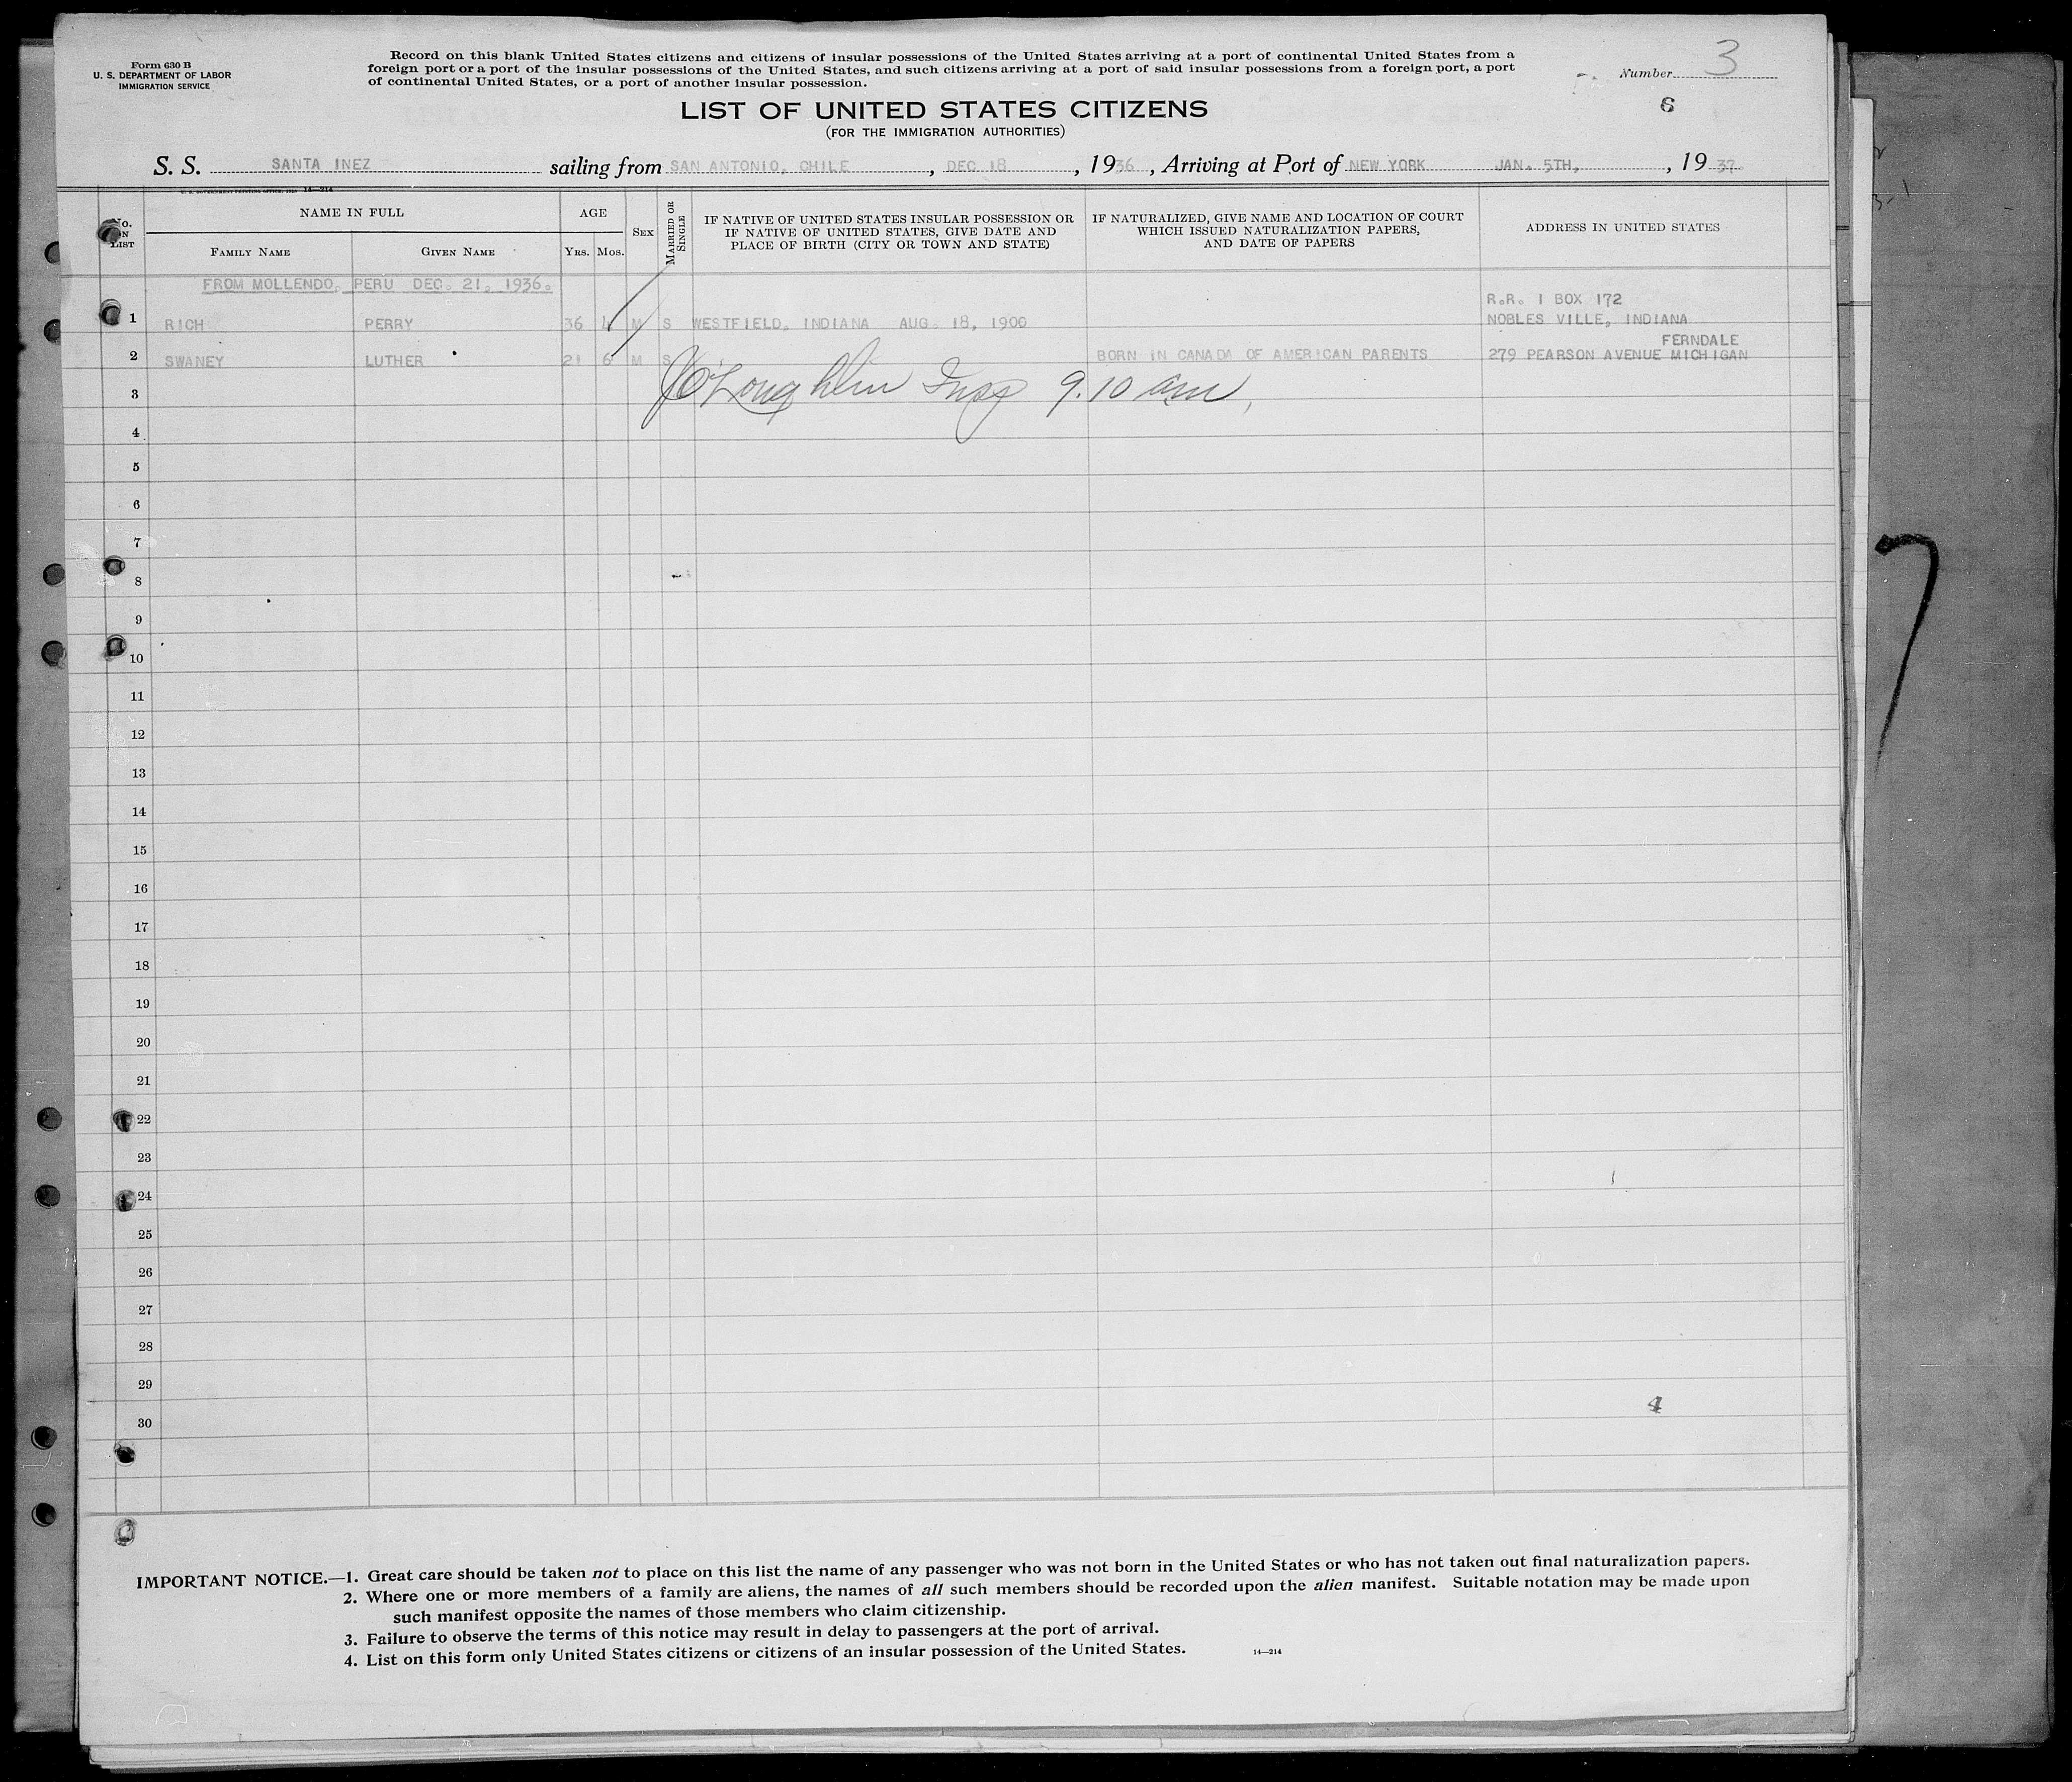 Form 630 B
U. S. DEPARTMENT OF LABOR
IMMIGRATION SERVICE
Record on this blank United States citizens and citizens of insular possessions of the United States arriving at a port of continental United States from a
foreign port or a port of the insular possessions of the United States, and such citizens arriving at a port of said insular possessions from a foreign port, a port
of continental United States, or a port of another insular possession.
Number 3
6
LIST OF UNITED STATES CITIZENS
(FOR THE IMMIGRATION AUTHORITIES)
S. S. SANTA INEZ sailing from SAN ANTONIO, CHILE, DEC 18, 1936, Arriving at Port of NEW YORK JAN. 5TH, , 1937.
No. ON LIST
NAME IN FULL
FAMILY NAME
GIVEN NAME
AGE
YRS. MOS.
SEX
MARRIED OR SINGLE
IF NATIVE OF UNITED STATES INSULAR POSSESSION OR
IF NATIVE OF UNITED STATES, GIVE DATE AND
PLACE OF BIRTH (CITY OR TOWN AND STATE)
IF NATURALIZED, GIVE NAME AND LOCATION OF COURT
WHICH ISSUED NATURALIZATION PAPERS,
AND DATE OF PAPERS
ADDRESS IN UNITED STATES
FROM MOLLENDO, PERU DEC. 21, 1936.
R.R. 1 BOX 172
1 RICH PERRY 36 4 M S WESTFIELD, INDIANA AUG. 18, 1900 NOBLES VILLE, INDIANA
FERNDALE
2 SWANEY LUTHER 21 6 M S BORN IN CANADA OF AMERICAN PARENTS 279 PEARSON AVENUE MICHIGAN
3 O'Loughlin Insp 9.10 am,
4
5
6
7
8
9
10
11
12
13
14
15
16
17
18
19
20
21
22
23
24
25
26
27
28
29
4
30
IMPORTANT NOTICE.—1. Great care should be taken not to place on this list the name of any passenger who was not born in the United States or who has not taken out final naturalization papers.
2. Where one or more members of a family are aliens, the names of all such members should be recorded upon the alien manifest. Suitable notation may be made upon
such manifest opposite the names of those members who claim citizenship.
3. Failure to observe the terms of this notice may result in delay to passengers at the port of arrival.
4. List on this form only United States citizens or citizens of an insular possession of the United States.
14—214